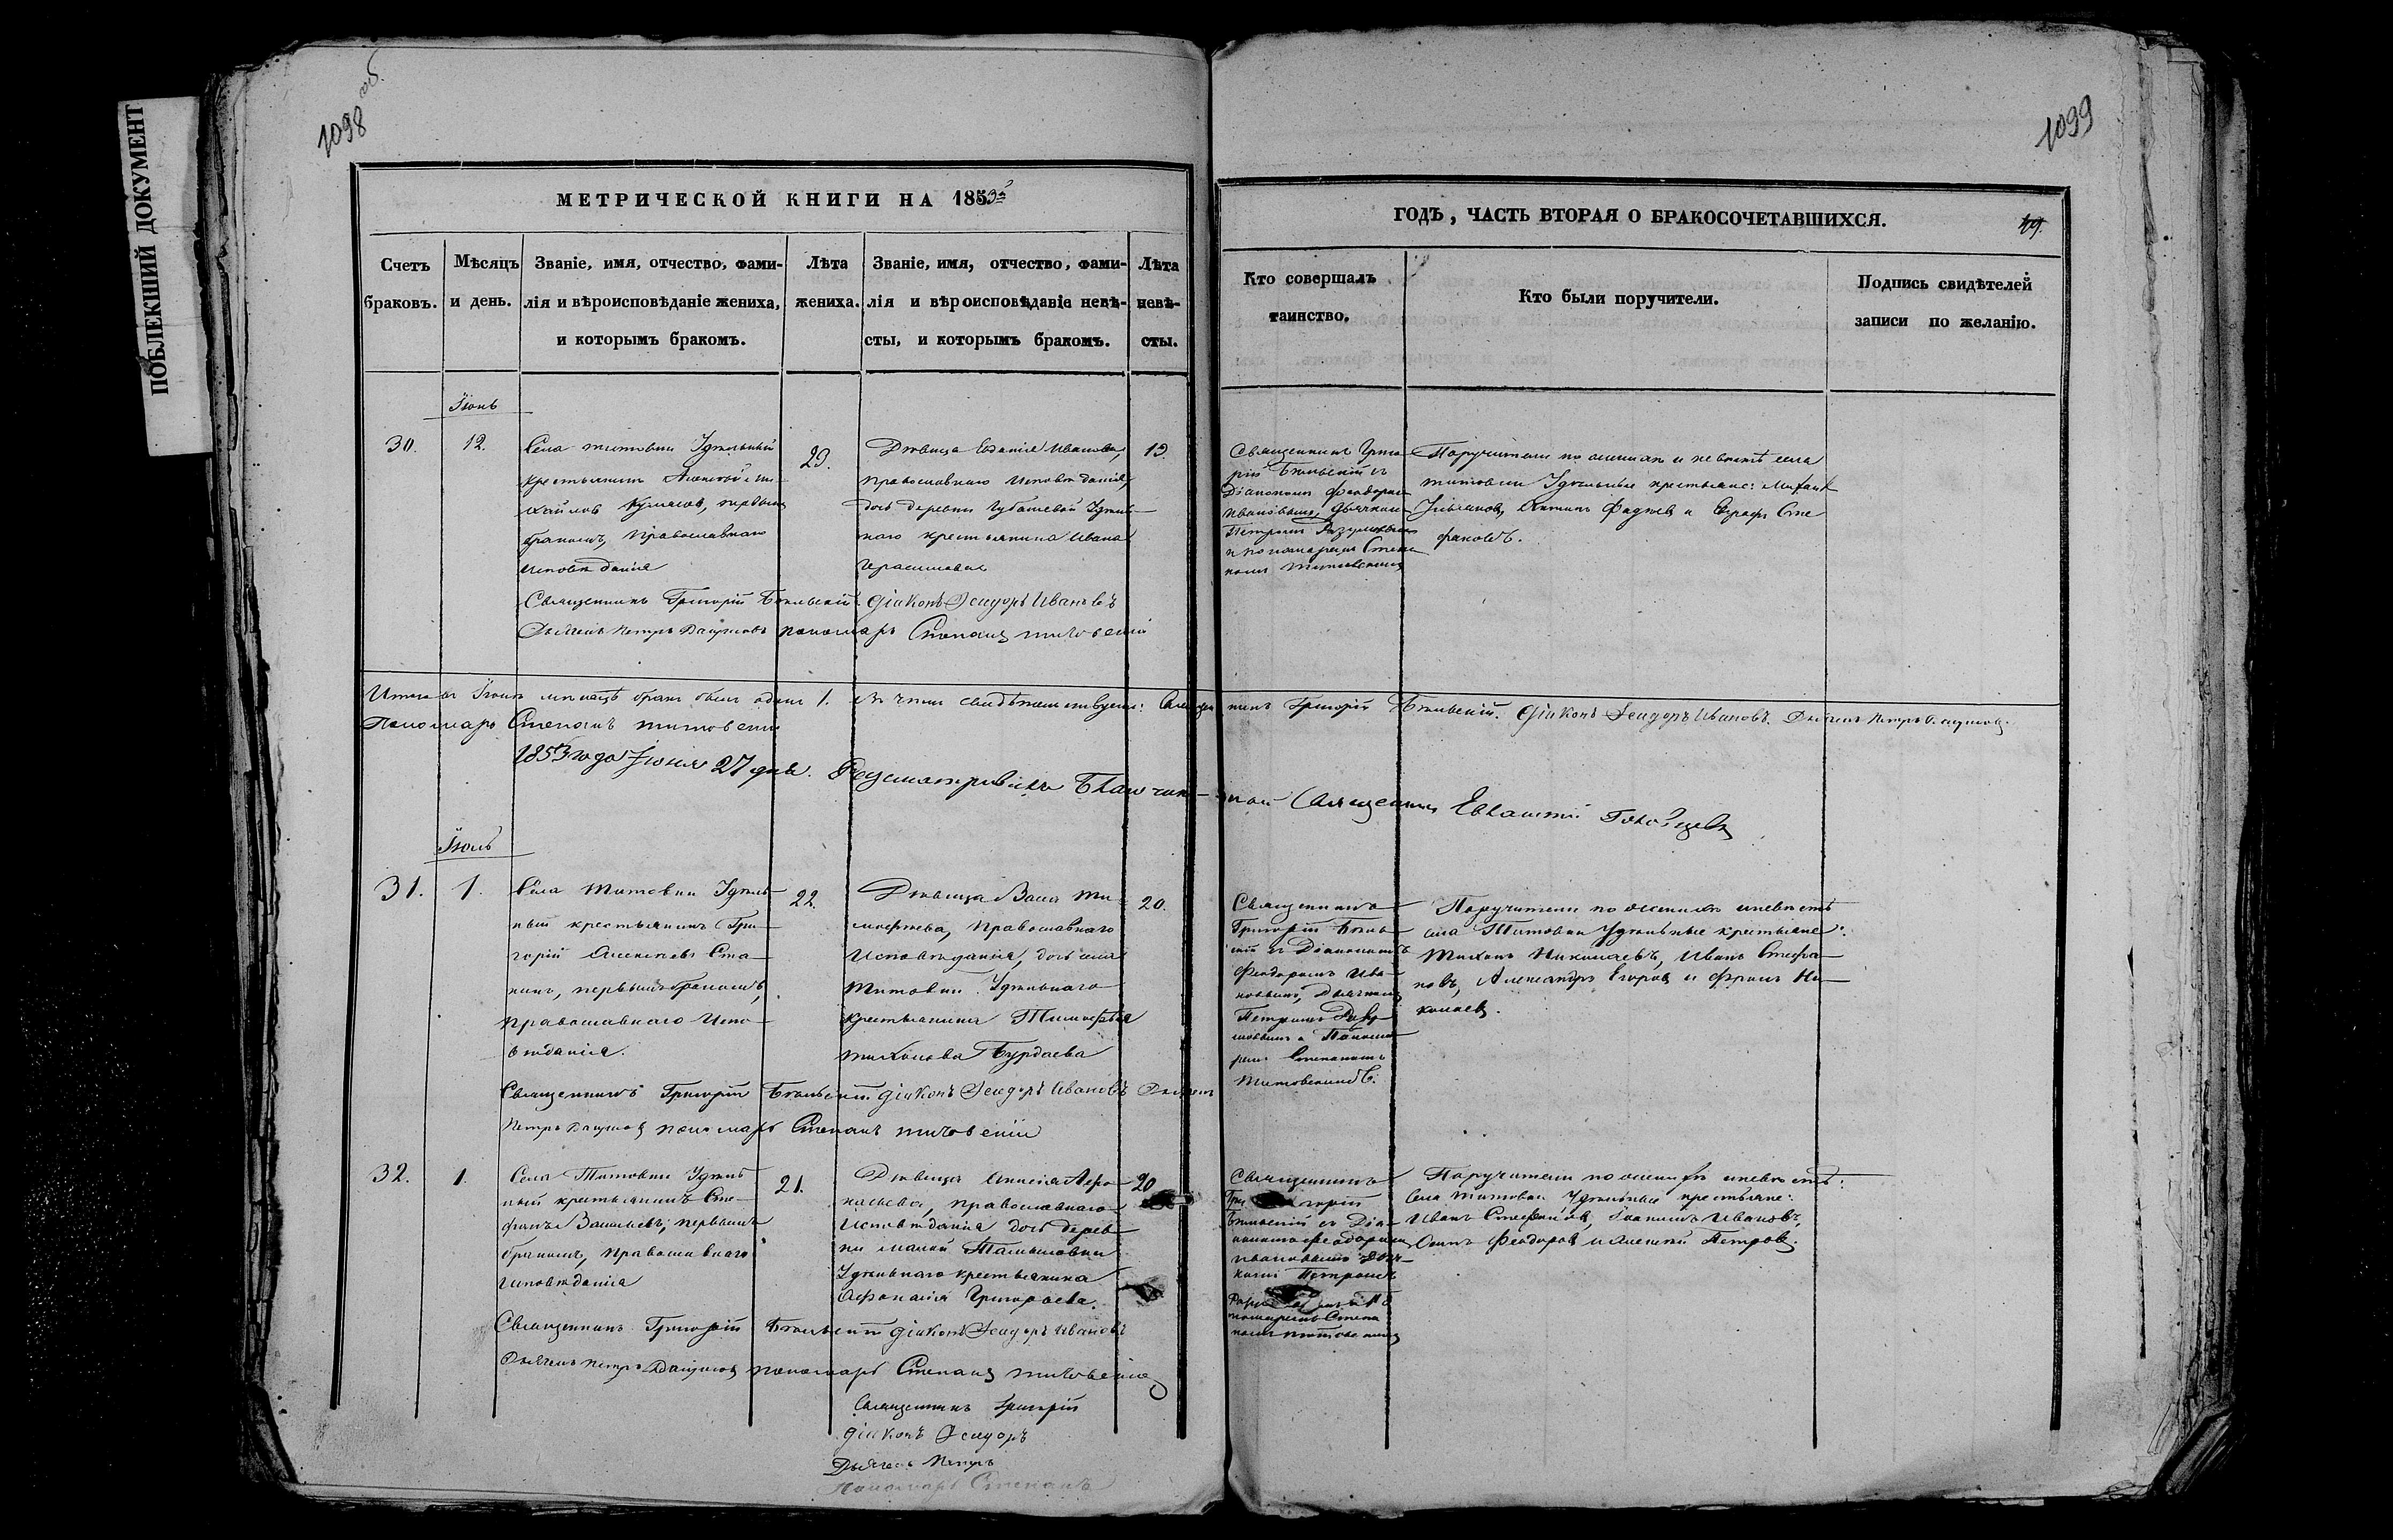 ПОБЛЕКШИЙ ДОКУМЕНТ
1098 об.
1099
МЕТРИЧЕСКОЙ КНИГИ НА 1853й
ГОДЪ, ЧАСТЬ ВТОРАЯ О БРАКОСОЧЕТАВШИХСЯ.
49.
Счетъ браковъ.
Мѣсяцъ и день.
Званіе, имя, отчество, фами-
лія и вѣроисповѣданіе жениха,
и которымъ бракомъ.
Лѣта
жениха.
Званіе, имя, отчество, фами-
лія и вѣроисповѣданіе невѣ-
сты, и которымъ бракомъ.
Лѣта
невѣ-
сты.
Кто совершалъ
таинство.
Кто были поручители.
Подпись свидѣтелей
записи по желанію.
Іюнь
30.
12.
Села Титовки Удѣльный
крестьянинъ Алексѣй Ми-
хайловъ первымъ
бракомъ, Православнаго
Исповѣданія
29.
Дѣвица Иванова,
православнаго Исповѣданія,
дочь деревни Удѣль-
наго крестьянина Ивана
Герасимова
19.
Священникъ Григо-
рій Бѣльскій съ
Діакономъ Феодоромъ
Ивановымъ, Дьячкомъ
Петромъ
и пономаремъ Степа-
номъ Титовскимъ
Поручители по женихѣ и невѣстѣ села
Титовки Удѣльные крестьяне:
Фадѣевъ и Сте-
фановъ.
Священникъ Григорій Бѣльскій. Діаконъ Ѳеодоръ Ивановъ
Дьячекъ Петръ пономарь Степанъ Титовскій
Итого въ Іюнѣ мѣсяцѣ бракъ былъ одинъ 1. въ чемъ свидѣтельствуемъ: Священникъ Григорій Бѣльскій. Діаконъ Ѳеодоръ Ивановъ. Дьячекъ Петръ
Пономарь Степанъ Титовскій
1853 года Іюня 27 дня. Разсматривалъ Благочин-ной Священникъ
Іюль
31.
1.
Села Титовки Удѣль-
ный крестьянинъ Гри-
горій Алексѣевъ Ста-
нинъ, первымъ бракомъ,
православнаго Испо-
вѣданія.
22.
Дѣвица Васа Ти-
мофѣева, Православнаго
Исповѣданія, дочь села
Титовки Удѣльнаго
Крестьянина Тимофѣя
Тихонова Бурдаева
20.
Священникъ
Григорій Бѣль-
скій съ Діакономъ
Феодоромъ Ива-
новымъ, Дьячкомъ
Петромъ
и Понома-
ремъ Степаномъ
Титовскимъ.
Поручители по женихѣ и невѣстѣ
села Титовки Удѣльные крестьяне:
Тихонъ Николаевъ, Иванъ Стефа-
новъ, Александръ Егоровъ и Ефремъ Ни-
колаевъ.
Священникъ Григорій Бѣльскій діаконъ Ѳеодоръ Ивановъ Дьячекъ
Петръ пономарь Степанъ Титовскій
32.
1.
Села Титовки Удѣль-
ный крестьянинъ Сте-
фанъ Васильевъ, первымъ
бракомъ, православнаго
исповѣданія
21.
Дѣвица Анисія Афа-
насьева, православнаго
Исповѣданія дочь дерев-
ни малой
Удѣльнаго крестьянина
Афанасія Григорьева.
20
Священникъ
Григорій
Бѣльскій съ Діа-
кономъ Феодоромъ
Ивановымъ Дьяч-
комъ Петромъ
и По-
номаремъ Степа-
номъ Титовскимъ
Поручители по женихѣ и невѣстѣ:
Села Титовки Удѣльные крестьяне:
Иванъ Стефановъ, Іоакимъ Ивановъ,
Осипъ Феодоровъ и Алексѣй Петровъ.
Священникъ Григорій Бѣльскій діаконъ Ѳеодоръ Ивановъ
Дьячекъ Петръ пономарь Степанъ Титовскій
Священникъ Григорій
Діаконъ Ѳеодоръ
Дьячекъ Петръ
Пономарь Степанъ